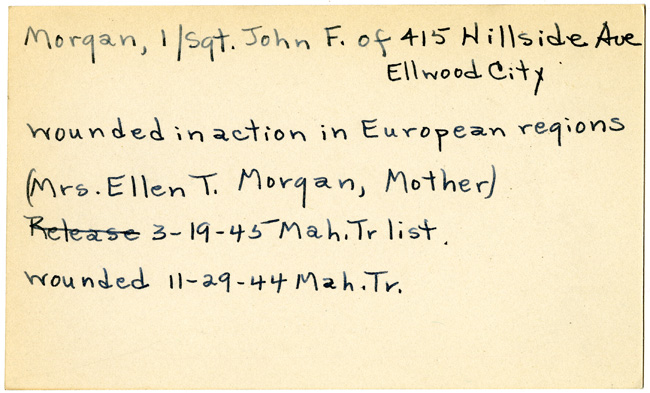 Morgan, 1/Sgt. John F. of 415 Hillside Ave
Ellwood City
wounded in action in European regions
(Mrs. Ellen T. Morgan, Mother)
Release 3-19-45 Mah. Tr list.
wounded 11-29-44 Mah. Tr.